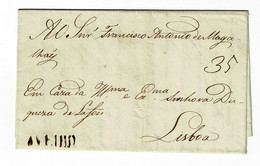 Al Snr. Francisco Antonio de Maga-
lhaẽs
35
Em Caza da Illma e Exma Senhora Du-
queza de Lafoes
Lisboa
AVEIRO